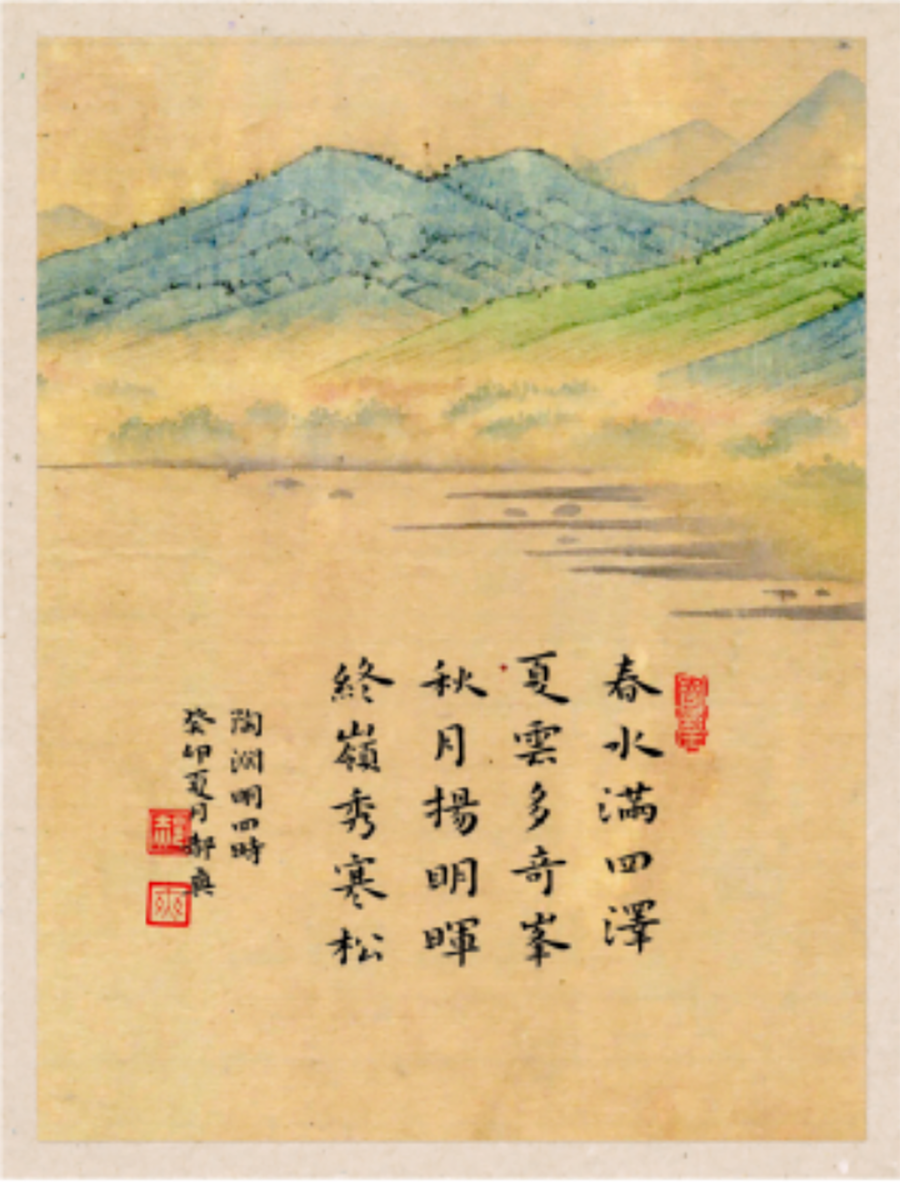 春水満四澤
夏雲多奇峯
秋月揚明暉
終嶺秀寒松
陶淵明四時
癸卯夏月郝爽